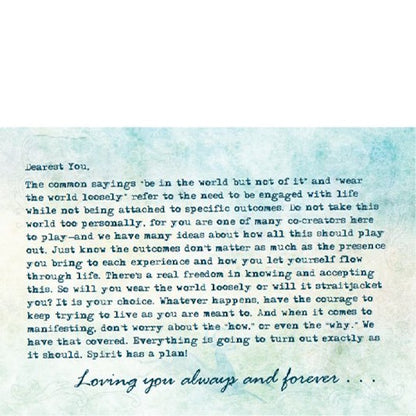 Dearest You,
The common sayings "be in the world but not of it" and "wear
the world loosely" refer to the need to be engaged with life
while not being attached to specific outcomes. Do not take this
world too personally, for you are one of many co-creators here
to play—and we have many ideas about how all this should play
out. Just know the outcomes don't matter as much as the presence
you bring to each experience and how you let yourself flow
through life. There's a real freedom in knowing and accepting
this. So will you wear the world loosely or will it straitjacket
you? It is your choice. Whatever happens, have the courage to
keep trying to live as you are meant to. And when it comes to
manifesting, don't worry about the "how," or even the "why." We
have that covered. Everything is going to turn out exactly as
it should. Spirit has a plan!
Loving you always and forever . . .